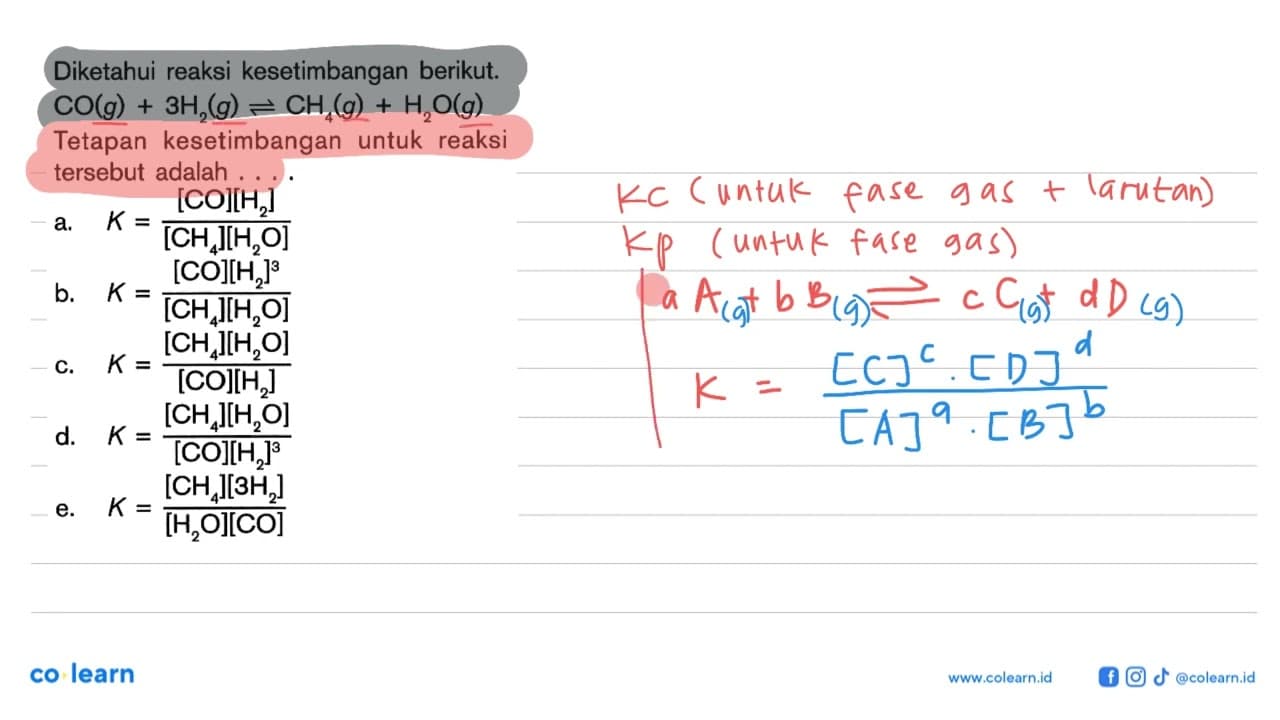 Diketahui reaksi kesetimbangan berikut.
CO(g) + 3H₂(g) ⇌ CH₄(g) + H₂O(g)
Tetapan kesetimbangan untuk reaksi
tersebut adalah . . . .
a. K = [CO][H₂] / [CH₄][H₂O]
b. K = [CO][H₂]³ / [CH₄][H₂O]
c. K = [CH₄][H₂O] / [CO][H₂]
d. K = [CH₄][H₂O] / [CO][H₂]³
e. K = [CH₄][3H₂] / [H₂O][CO]
Kc (untuk fase gas + larutan)
Kp (untuk fase gas)
a A(g) + b B(g) ⇌ c C(g) + d D (g)
K = [C]ᶜ . [D]ᵈ / [A]ᵃ . [B]ᵇ
co learn
www.colearn.id
@colearn.id